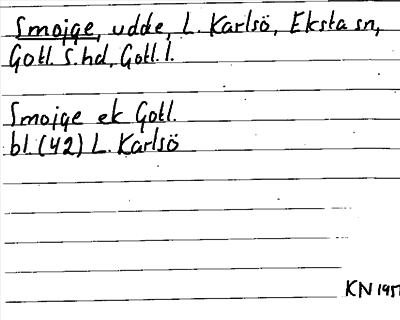 Smojge, udde, L. Karlsö, Eksta sn,
Gotl. S. hd, Gotl. l.
Smojge ek Gotl.
bl. (42) L. Karlsö
KN 195